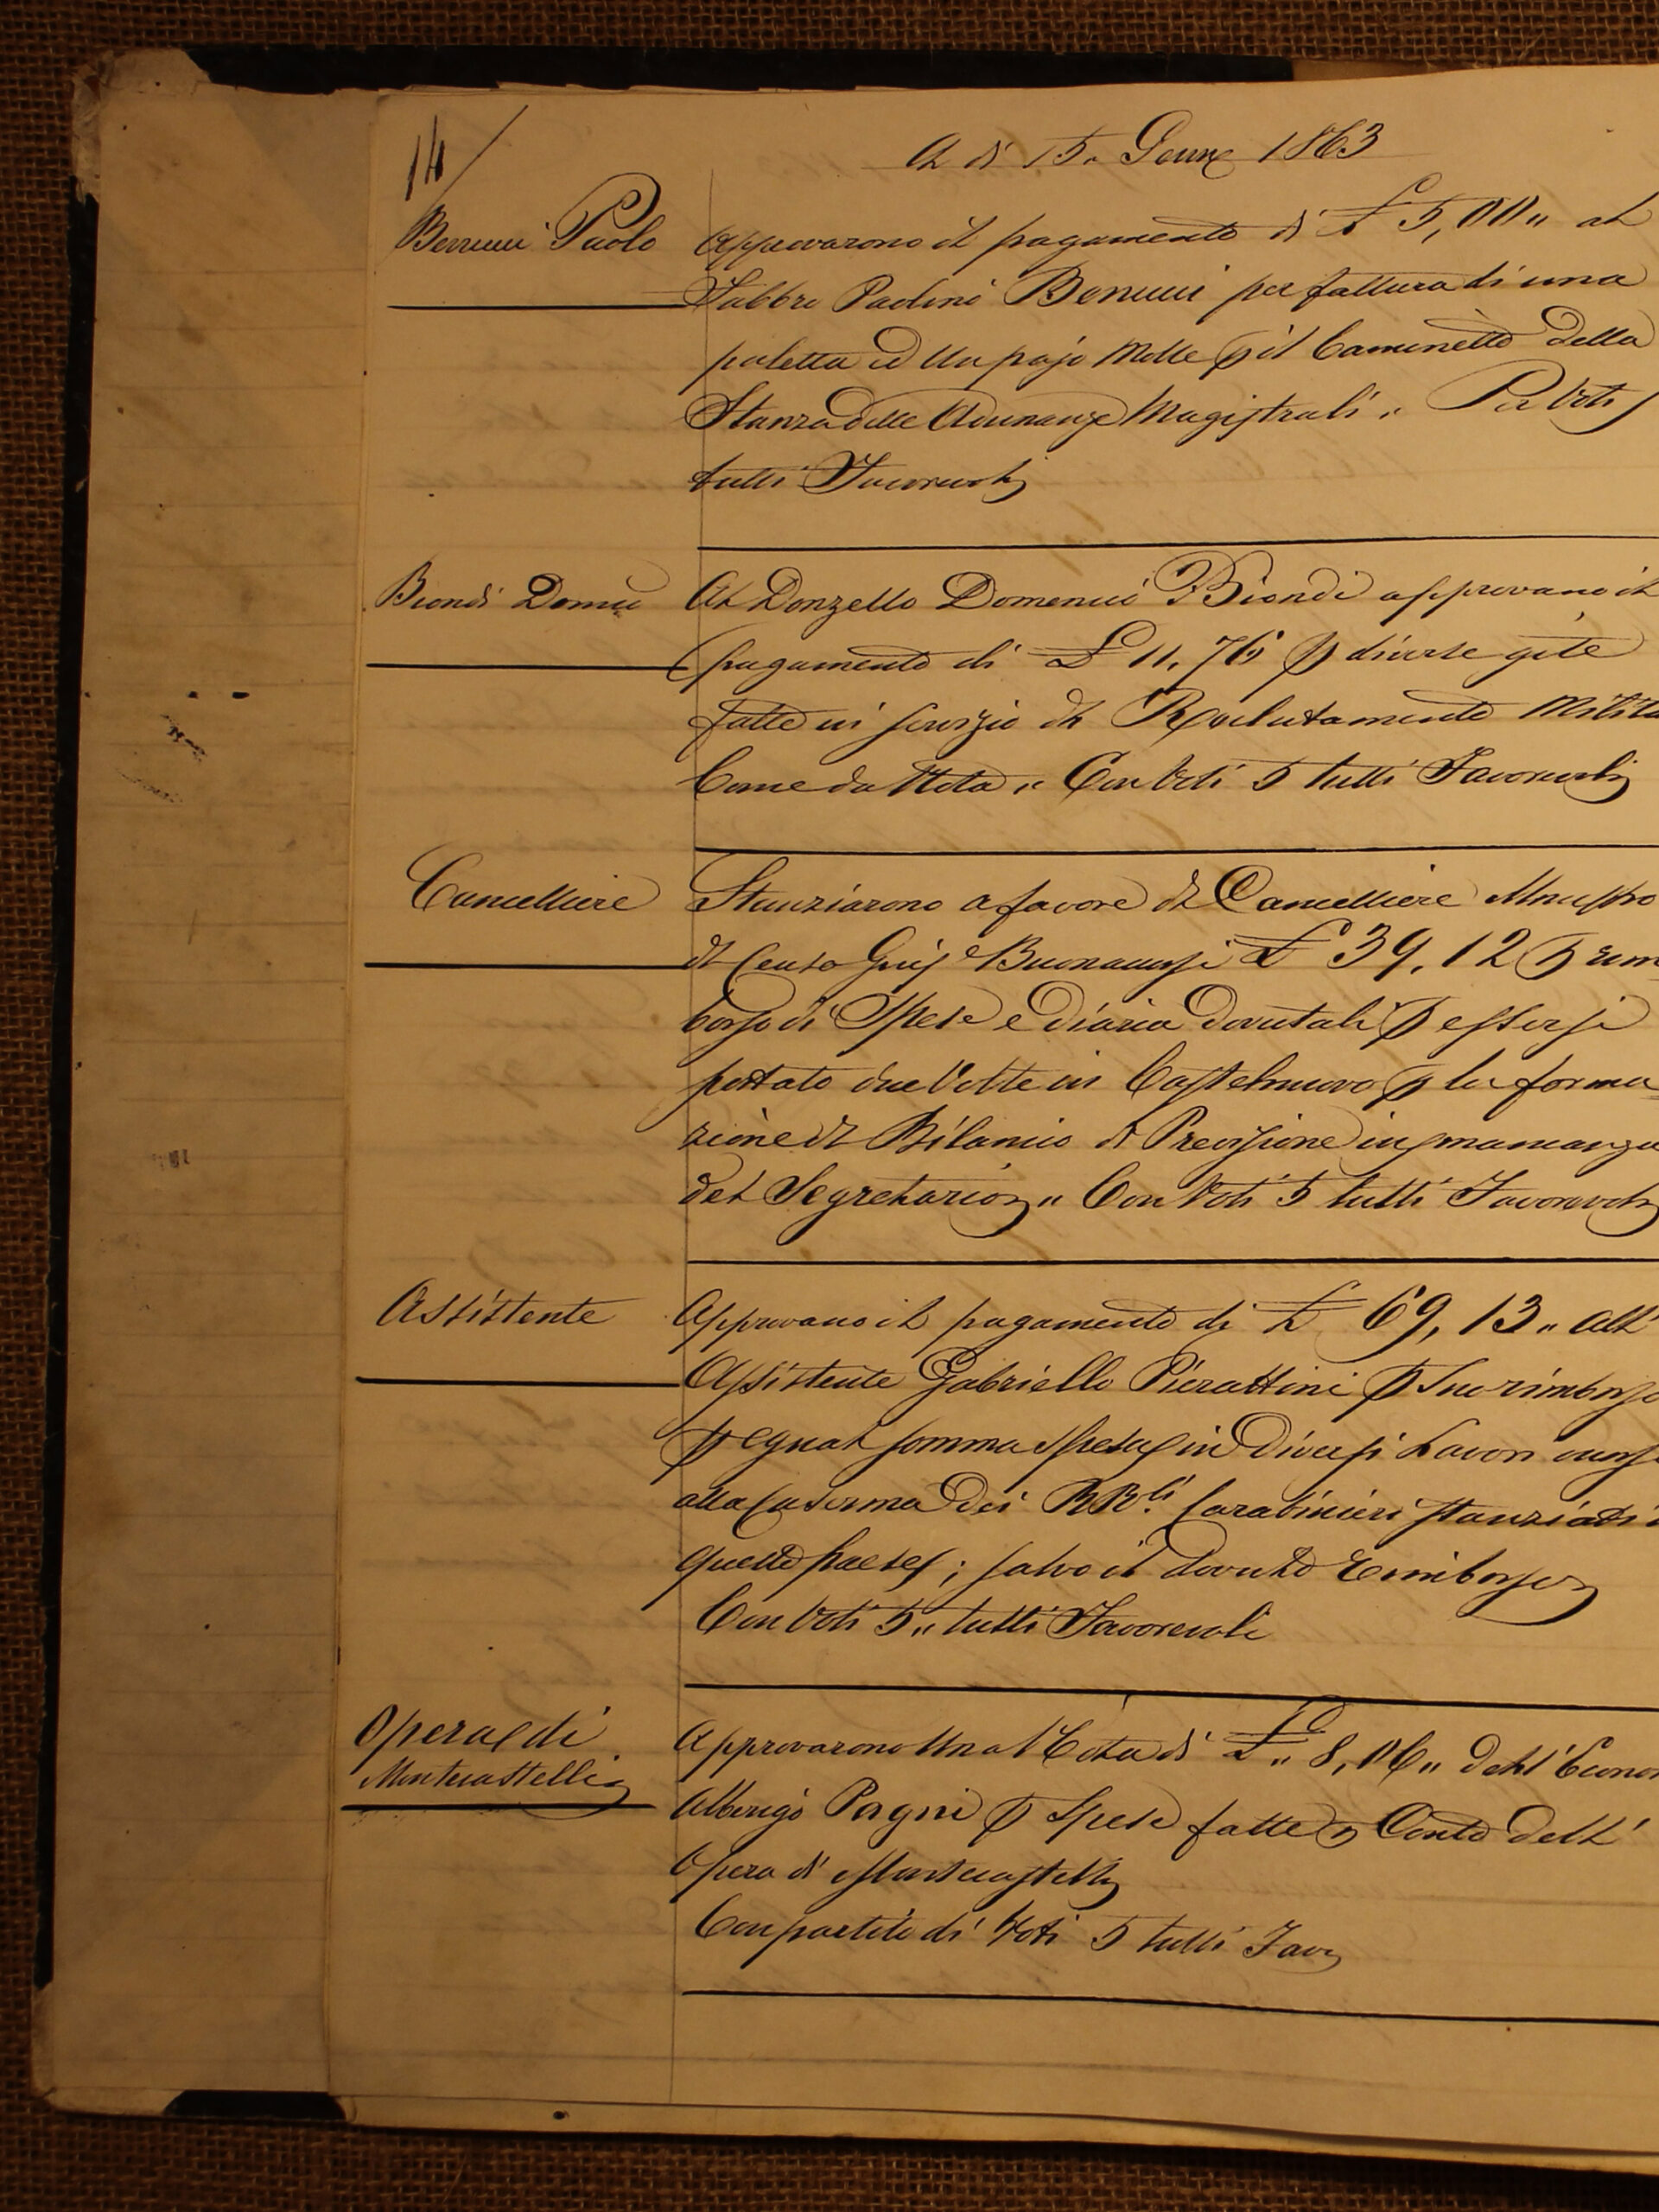 14/
A di 15. Genn 1863
Bennuci Paolo
Approvarono il pagamento di £ 5,00,, al
Fabbro Paolino Benucci per fattura di una
paletta ed Un pajo Molle p il Caminetto della
Stanza delle Adunanze Magistrali ,, Per Voti 5
tutti Favorevoli
Biondi Domco
Al Donzello Domenico Biondi approvano il
pagamento di £ 11,76 p diverse gite
fatte in servizio del Reclutamento Milita
Come da Nota ,, Con Voti 5 tutti Favorevoli
Cancelliere
Stanziarono a favore del Cancelliere Ministro
del Censo Buonaccorsi £ 39,12 p rim
borso di Spese e Diaria dovutali p essersi
portato due Volte in Castelnuovo p la forma
zione del Bilancio di Previsione in mancanza
del Segretario ,, Con Voti 5 tutti Favorevoli
Assistente
Approvano il pagamento di £ 69,13,, all'
Assistente Gabriello Pierattini p Suo rimborso
p egual somma Spesa in Diversi Lavori
alla Caserma Dei RRli Carabinieri stanziati i
questo paese ; salvo il dovuto Rimborso
Con Voti 5,, tutti Favorevoli
Opera di
Montecastelli
Approvarono Una Nota di £,, 8,06,, Dell' Econo
Alberigo Pagni p Spese fatte p Conto Dell'
Opera di Montecastelli
Con partito di Voti 5 tutti Favi